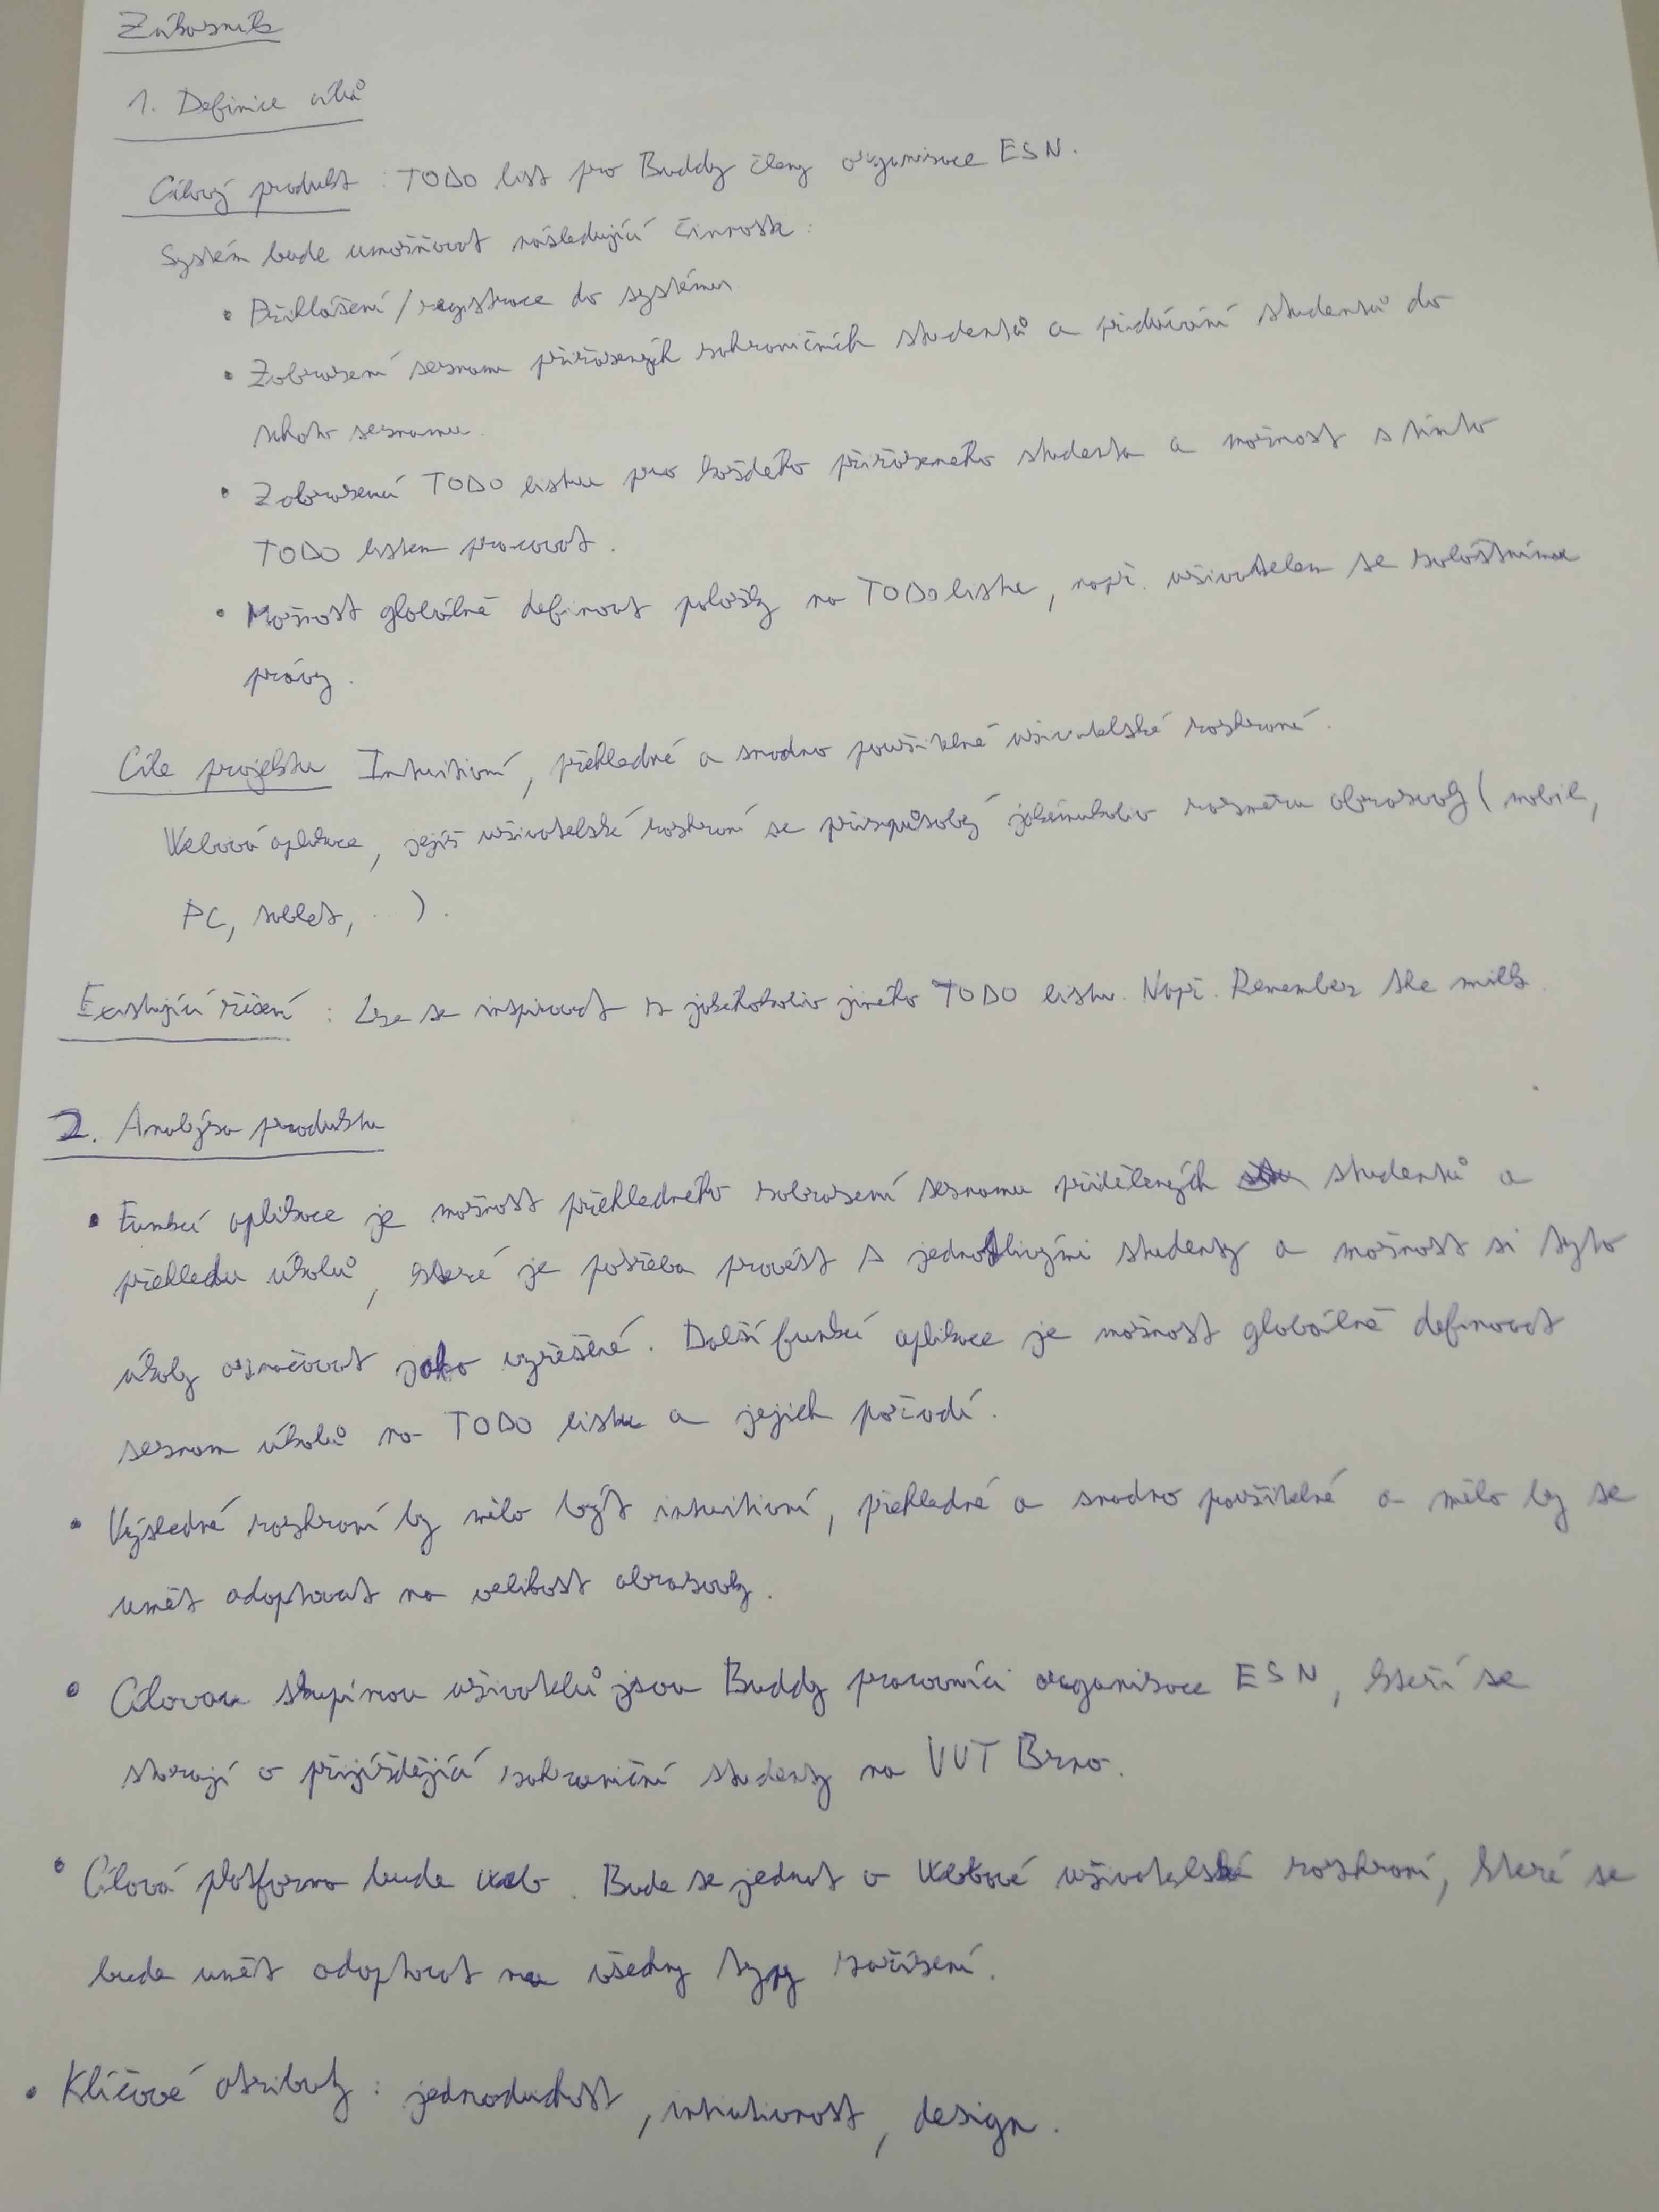 Zákazník
1. Definice cílů
Cílový produkt : TODO list pro Buddy členy organizace ESN.
Systém bude umožňovat následující činnosti :
• Přihlášení / registrace do systému
• Zobrazení seznamu přiřazených zahraničních studentů a přidávání studentů do
tohoto seznamu.
• Zobrazení TODO listu pro každého přiřazeného studenta a možnost s tímto
TODO listem pracovat.
• Možnost globálně definovat položky na TODO listu, např. uživatelem se zvláštníma
právy.
Cíle projektu Intuitivní, přehledné a snadno použitelné uživatelské rozhraní.
Webová aplikace, jejíž uživatelské rozhraní se přizpůsobý jakémukoliv rozměru obrazovky ( mobil,
PC, tablet, ... ).
Existující řešení : Lze se inspirovat z jakéhokoliv jiného TODO listu. Např. Remember the milk.
2. Analýza produktu
• Funkcí aplikace je možnost přehledného zobrazení seznamu přidělených studentů a
přehledu úkolů, které je potřeba provést s jednotlivými studenty a možnost si tyto
úkoly označovat jako vyřešené. Další funkcí aplikace je možnost globálně definovat
seznam úkolů na TODO listu a jejich pořadí.
• Výsledné rozhraní by mělo být intuitivní, přehledné a snadno použitelné a mělo by se
umět adaptovat na velikost obrazovky.
• Cílovou skupinou uživatelů jsou Buddy pracovníci organizace ESN, kteří se
starají o přijíždějící zahraniční studenty na VUT Brno.
• Cílová platforma bude web. Bude se jednat o webové uživatelské rozhraní, které se
bude umět adaptovat na všechny typy zařízení.
• Klíčové atributy : jednoduchost, intuitivnost, design.